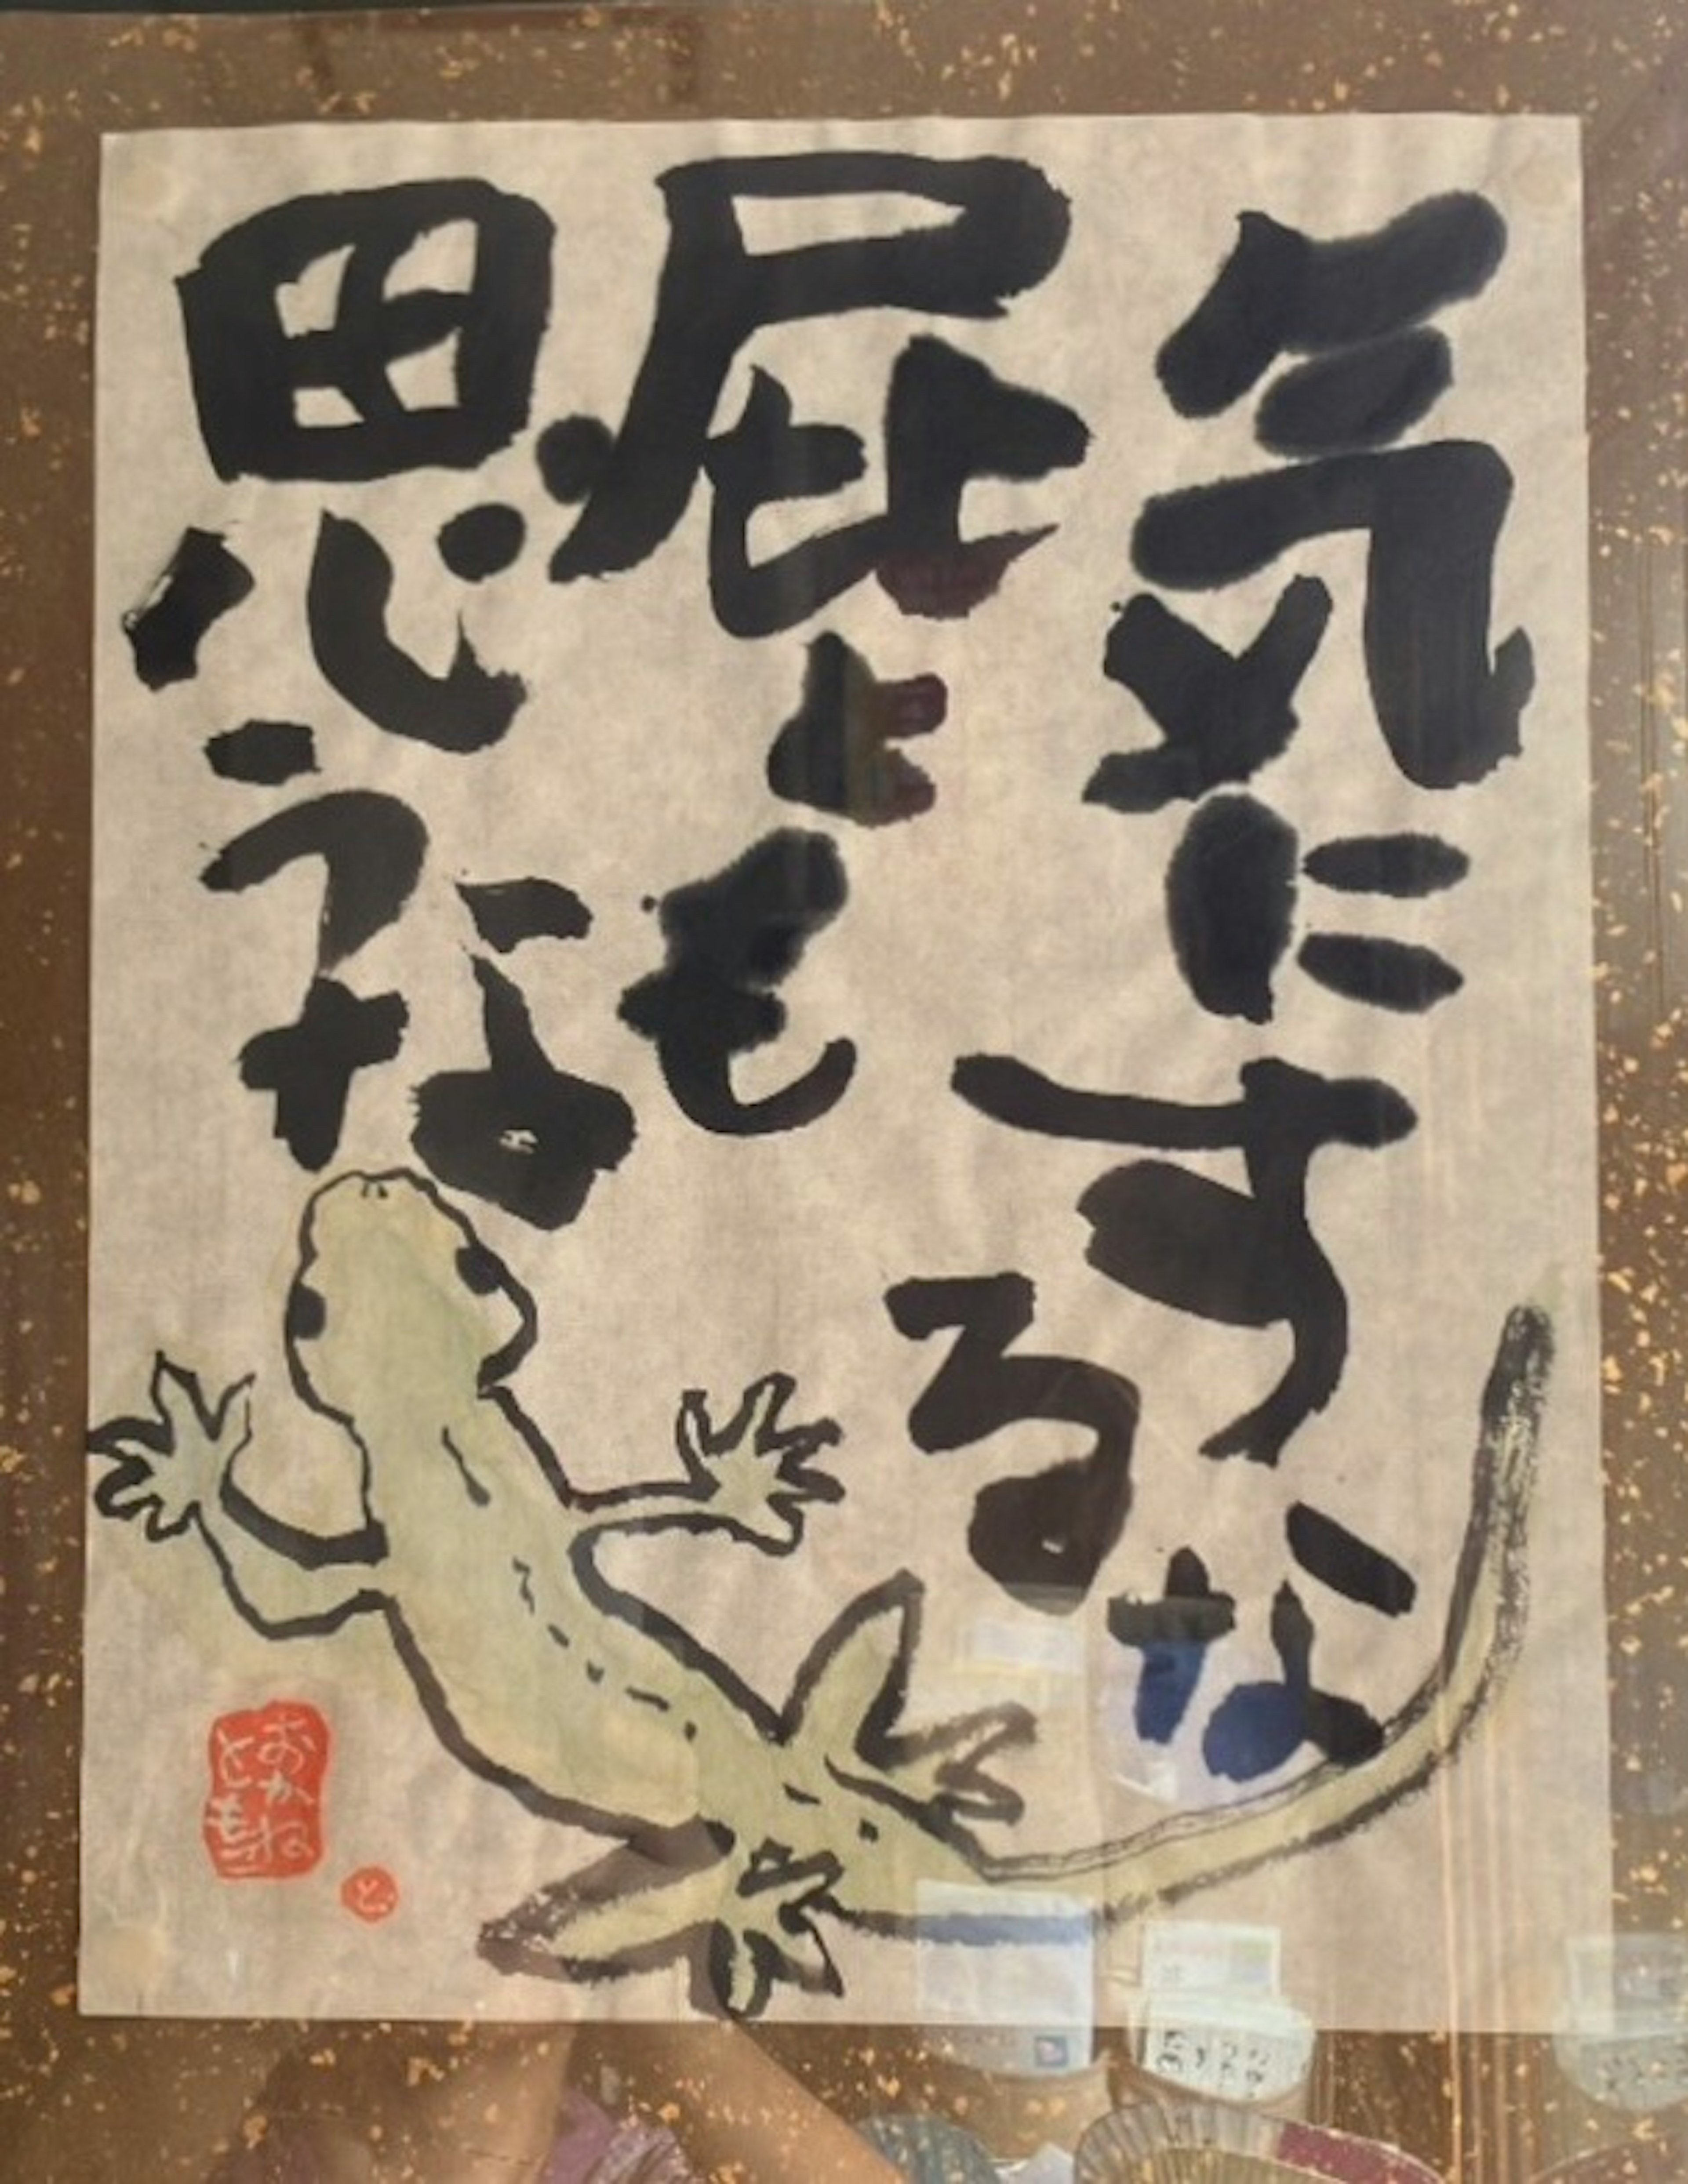 気にするな
屁とも
思うな
おかね
ともこ
と